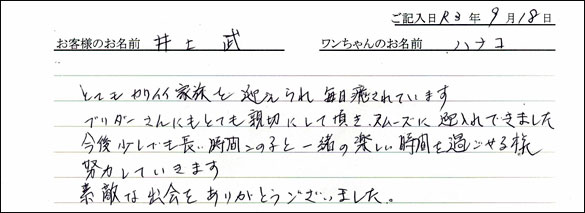 ご記入日 R3 年 9 月 18 日
お客様のお名前 井上 武 ワンちゃんのお名前 ハナコ
とてもカワイイ家族を迎えられ毎日癒されています
ブリダーさんにもとても親切にして頂きスムーズに迎入れできました
今後少しでも長い時間この子と一緒の楽しい時間を過ごせる様
努力していきます
素敵な出会をありがとうございました。